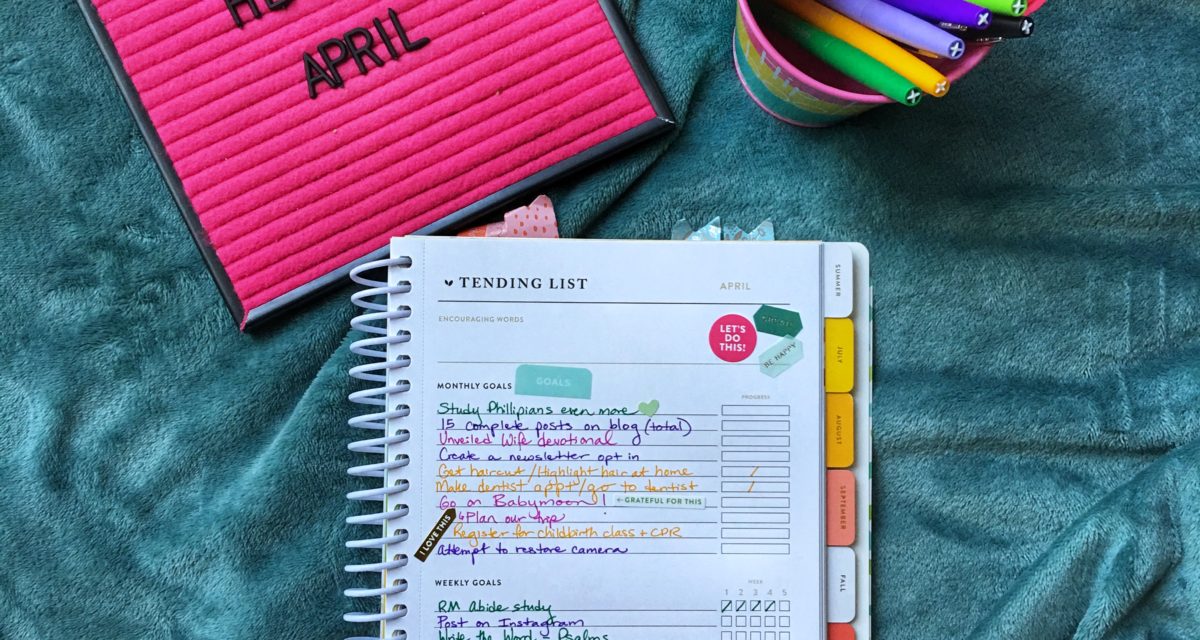 APRIL
TENDING LIST
APRIL
ENCOURAGING WORDS
LET'S
DO
THIS!
BE HAPPY
MONTHLY GOALS
GOALS
PROGRESS
Study Phillipians even more
15 complete posts on blog (total)
Unveiled Wife devotional
Create a newsletter opt in
Get haircut/Highlight hair at home
Make dentist appt/go to dentist
Go on Babymoon!
←GRATEFUL FOR THIS
↳Plan our trip
I LOVE THIS
Register for childbirth class + CPR
attempt to restore camera
WEEKLY GOALS
WEEK
1 2 3 4 5
RM Abide study
Post on Instagram
Write the Word - Psalms
SUMMER
JULY
AUGUST
SEPTEMBER
FALL